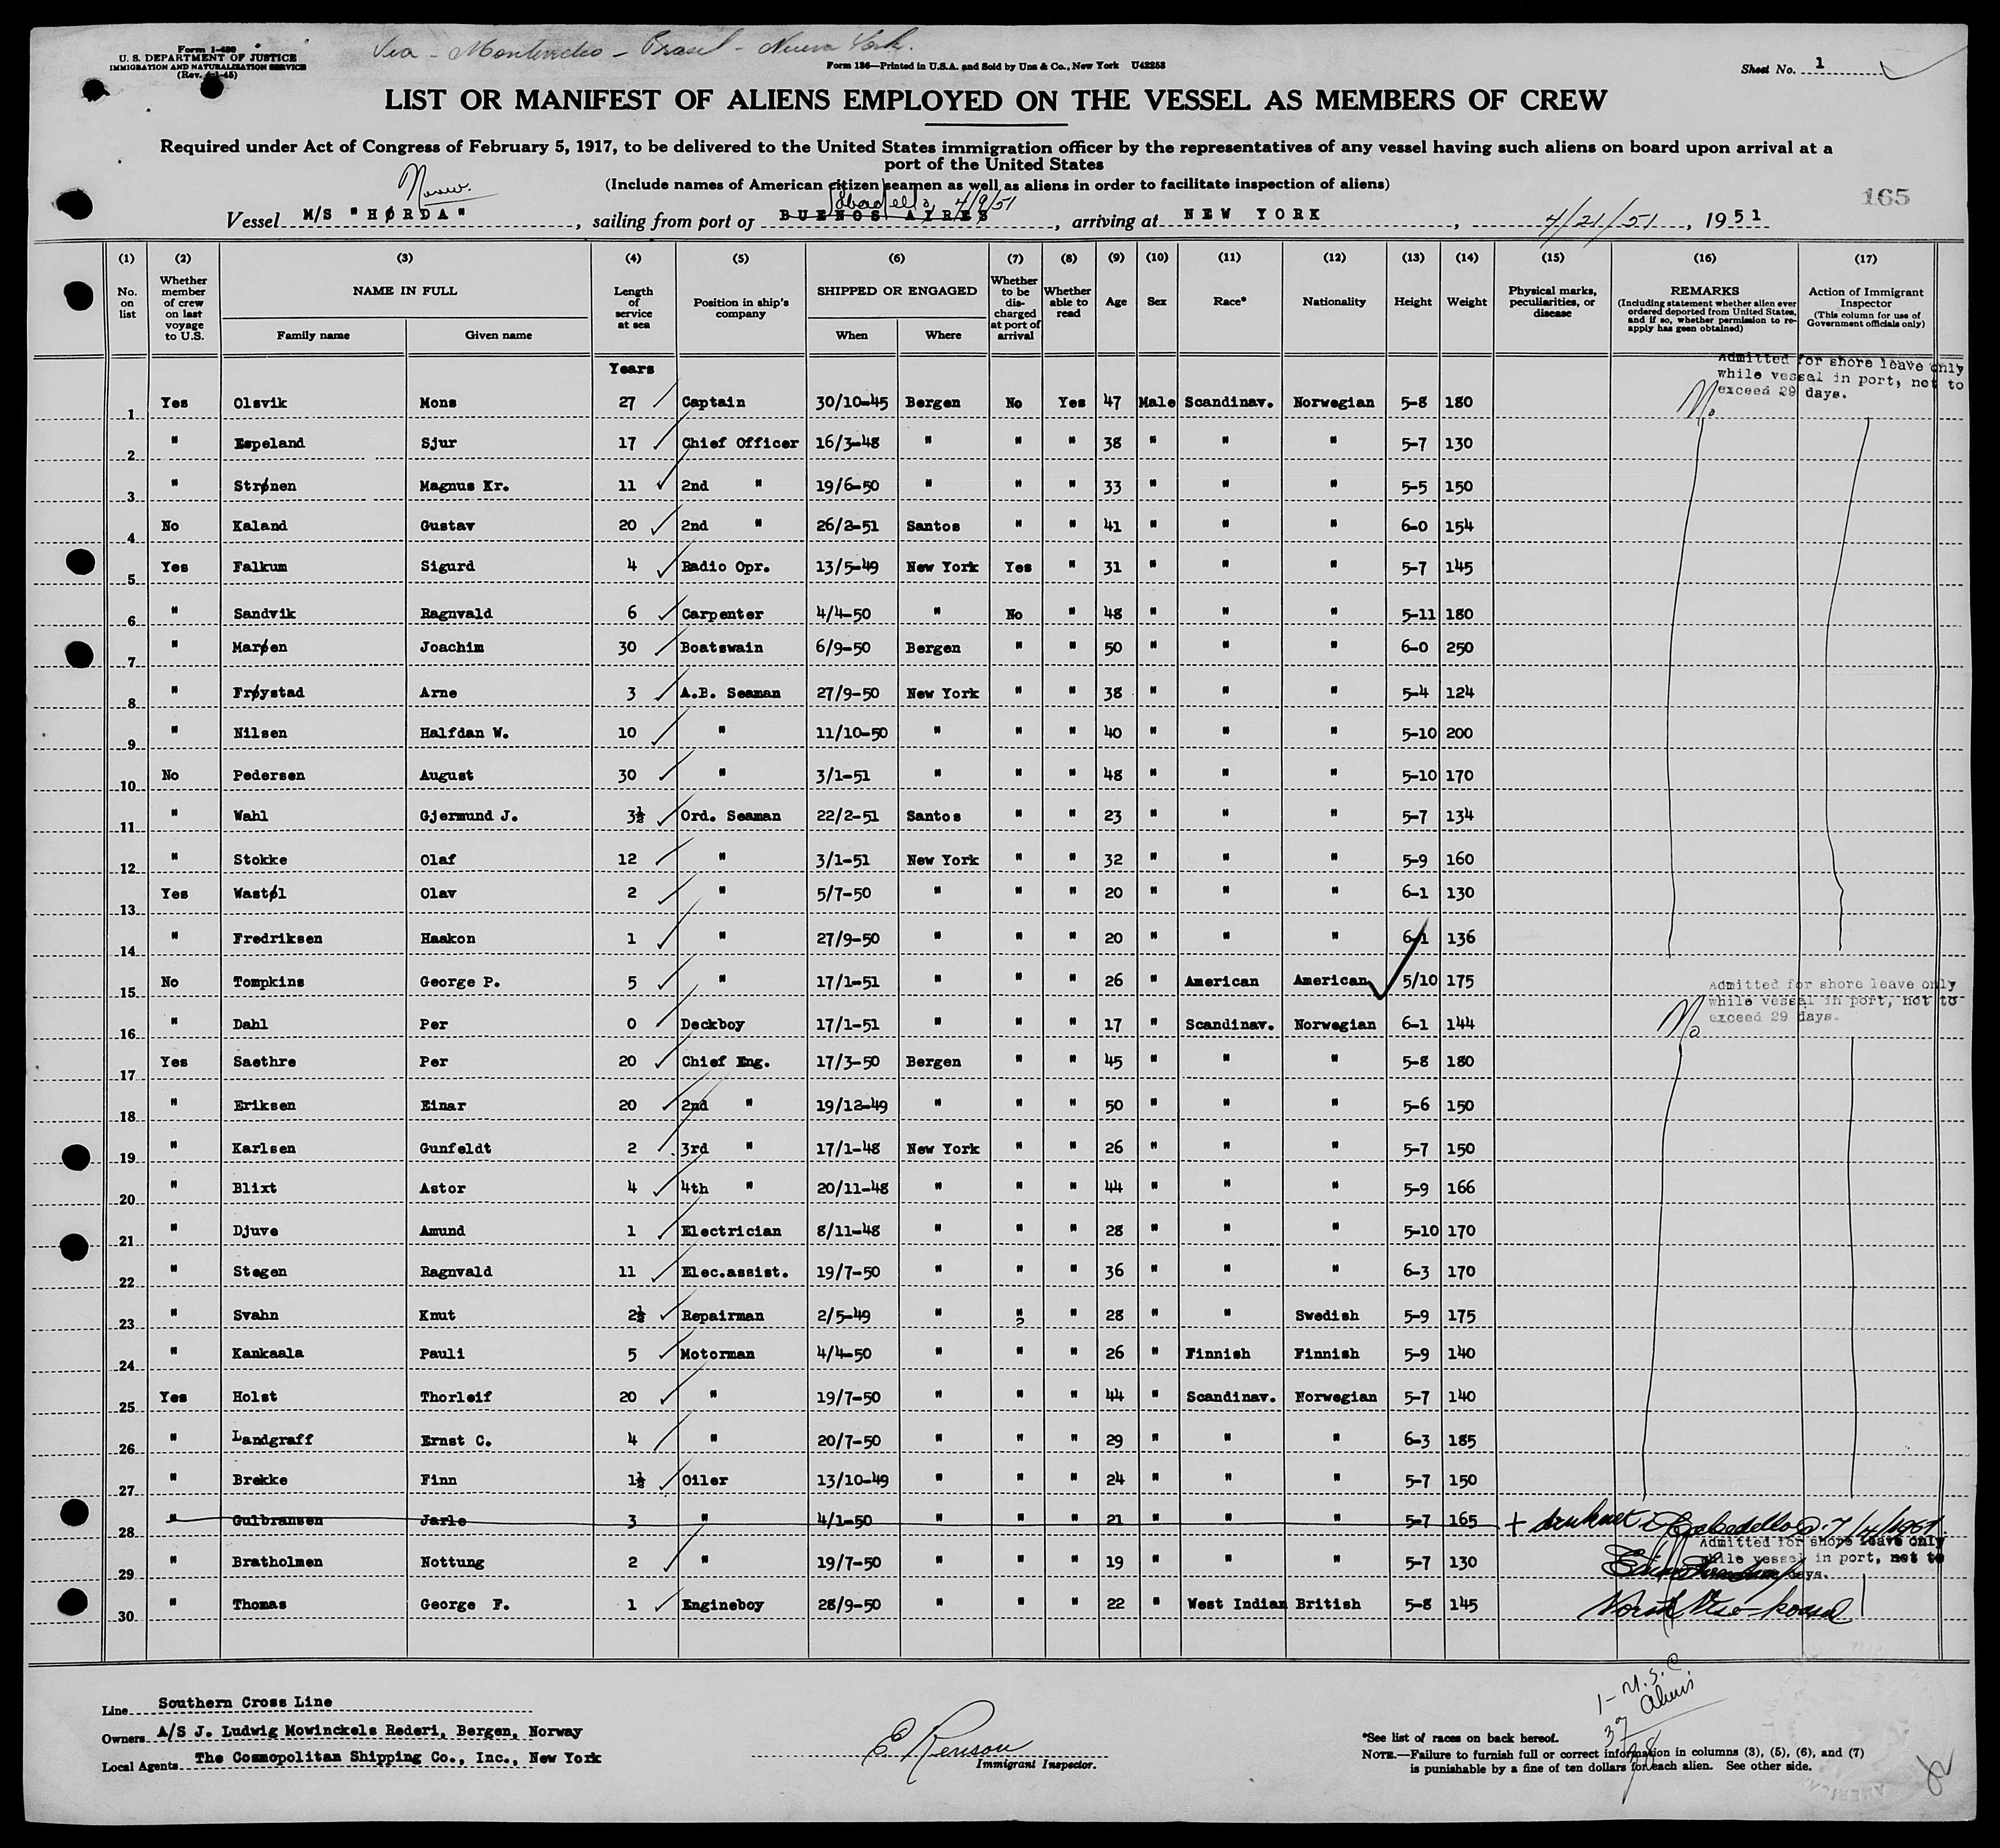 Form I-480
U. S. DEPARTMENT OF JUSTICE
IMMIGRATION AND NATURALIZATION SERVICE
(Rev. 4-1-45)
Via - Montevideo - Brasil - Nueva York.
Form 136—Printed in U.S.A. and Sold by Unz & Co., New York U42253
Sheet No. 1
LIST OR MANIFEST OF ALIENS EMPLOYED ON THE VESSEL AS MEMBERS OF CREW
Required under Act of Congress of February 5, 1917, to be delivered to the United States immigration officer by the representatives of any vessel having such aliens on board upon arrival at a
port of the United States
(Include names of American citizen seamen as well as aliens in order to facilitate inspection of aliens)
165
Norw. 4/9/51
Vessel M/S "HØRDA", sailing from port of BUENOS AIRES, arriving at NEW YORK, 4/21/51, 1951
(1) (2) (3) (4) (5) (6) (7) (8) (9) (10) (11) (12) (13) (14) (15) (16) (17)
No. on list
Whether member of crew on last voyage to U.S.
NAME IN FULL
Family name Given name
Length of service at sea
Position in ship's company
SHIPPED OR ENGAGED
When Where
Whether to be discharged at port of arrival
Whether able to read
Age
Sex
Race*
Nationality
Height
Weight
Physical marks, peculiarities, or disease
REMARKS
(Including statement whether alien ever ordered deported from United States, and if so, whether permission to reapply has been obtained)
Action of Immigrant Inspector
(This column for use of Government officials only)
Years
Admitted for shore leave only
while vessel in port, not to
exceed 29 days.
1 Yes Olsvik Mons 27 Captain 30/10-45 Bergen No Yes 47 Male Scandinav. Norwegian 5-8 180 No
2 " Espeland Sjur 17 Chief Officer 16/3-48 " " " 38 " " " 5-7 130
3 " Strønen Magnus Kr. 11 2nd " 19/6-50 " " " 33 " " " 5-5 150
4 No Kaland Gustav 20 2nd " 26/2-51 Santos " " 41 " " " 6-0 154
5 Yes Falkum Sigurd 4 Radio Opr. 13/5-49 New York Yes " 31 " " " 5-7 145
6 " Sandvik Ragnvald 6 Carpenter 4/4-50 " No " 48 " " " 5-11 180
7 " Marøen Joachim 30 Boatswain 6/9-50 Bergen " " 50 " " " 6-0 250
8 " Frøystad Arne 3 A.B. Seaman 27/9-50 New York " " 38 " " " 5-4 124
9 " Nilsen Halfdan W. 10 " 11/10-50 " " " 40 " " " 5-10 200
10 No Pedersen August 30 " 3/1-51 " " " 48 " " " 5-10 170
11 " Wahl Gjermund J. 3½ Ord. Seaman 22/2-51 Santos " " 23 " " " 5-7 134
12 " Stokke Olaf 12 " 3/1-51 New York " " 32 " " " 5-9 160
13 Yes Wastøl Olav 2 " 5/7-50 " " " 20 " " " 6-1 130
14 " Fredriksen Haakon 1 " 27/9-50 " " " 20 " " " 6-1 136
15 No Tompkins George P. 5 " 17/1-51 " " " 26 " American American 5/10 175
Admitted for shore leave only
while vessel in port, not to
exceed 29 days.
16 " Dahl Per 0 Deckboy 17/1-51 " " " 17 " Scandinav. Norwegian 6-1 144 No
17 Yes Saethre Per 20 Chief Eng. 17/3-50 Bergen " " 45 " " " 5-8 180
18 " Eriksen Einar 20 2nd " 19/12-49 " " " 50 " " " 5-6 150
19 " Karlsen Gunfeldt 2 3rd " 17/1-48 New York " " 26 " " " 5-7 150
20 " Blixt Astor 4 4th " 20/11-48 " " " 44 " " " 5-9 166
21 " Djuve Amund 1 Electrician 8/11-48 " " " 28 " " " 5-10 170
22 " Stegen Ragnvald 11 Elec.assist. 19/7-50 " " " 36 " " " 6-3 170
23 " Svahn Knut 2½ Repairman 2/5-49 " " ? " 28 " " Swedish 5-9 175
24 " Kankaala Pauli 5 Motorman 4/4-50 " " " 26 " Finnish Finnish 5-9 140
25 Yes Holst Thorleif 20 " 19/7-50 " " " 44 " Scandinav. Norwegian 5-7 140
26 " Landgraff Ernst C. 4 " 20/7-50 " " " 29 " " " 6-3 185
27 " Brekke Finn 1½ Oiler 13/10-49 " " " 24 " " " 5-7 150
28 " Gulbransen Jarle 3 " 4/1-50 " " " 21 " " " 5-7 165
Admitted for shore leave only
while vessel in port, not to
days.
29 " Bratholmen Nottung 2 " 19/7-50 " " " 19 " " " 5-7 130
30 " Thomas George F. 1 Engineboy 28/9-50 " " " 22 " West Indian British 5-8 145 Norsk Vise-konsul
Line Southern Cross Line
Owners A/S J. Ludwig Mowinckels Rederi, Bergen, Norway
Local Agents The Cosmopolitan Shipping Co., Inc., New York
E Renson
Immigrant Inspector.
1 - U.S.C.
37 aliens
38
*See list of races on back hereof.
NOTE.—Failure to furnish full or correct information in columns (3), (5), (6), and (7)
is punishable by a fine of ten dollars for each alien. See other side.